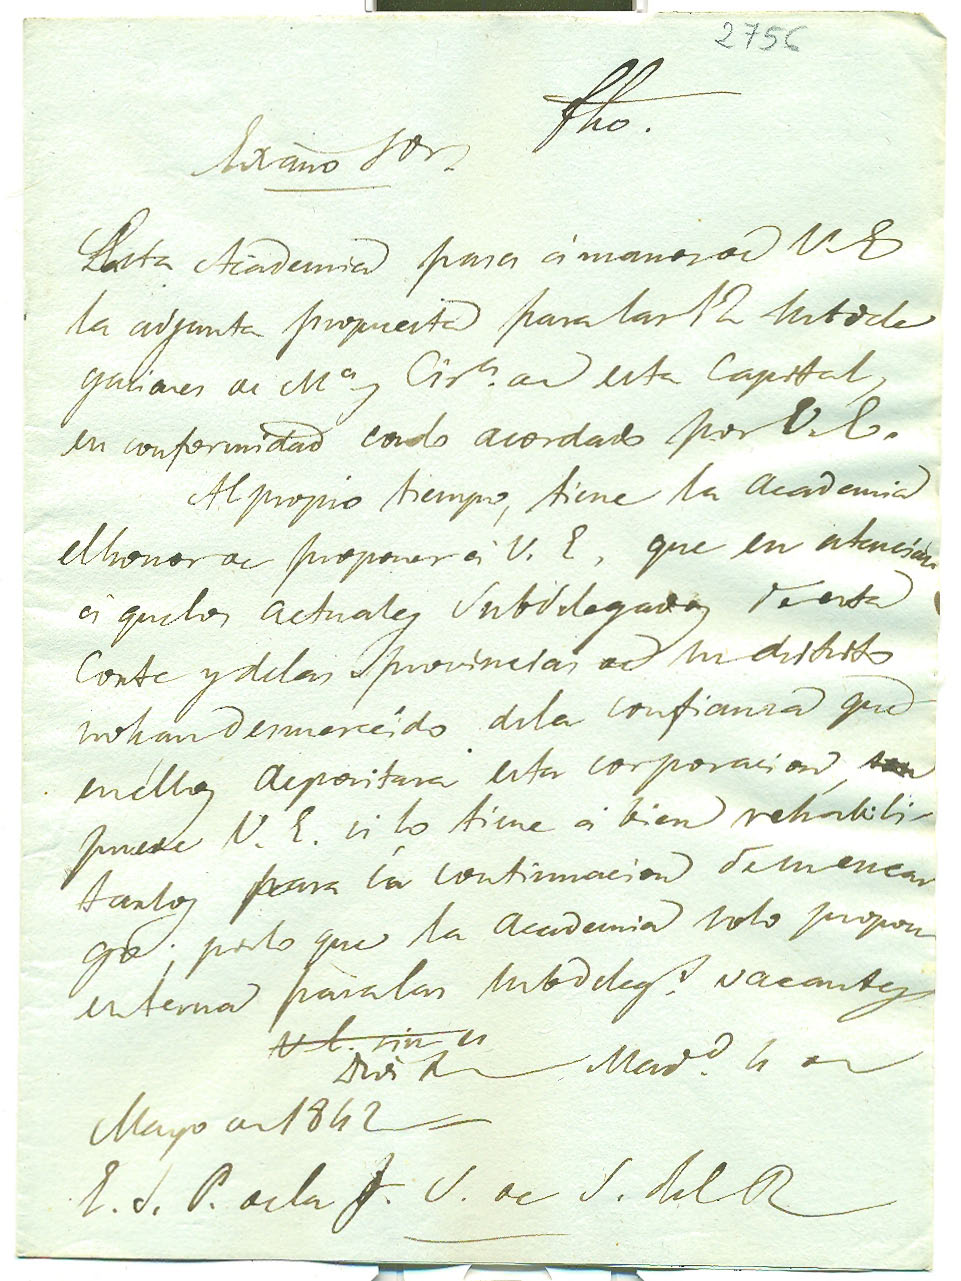 2756
fho.
Excmo Sor.
Esta Academia pasa á manos de V. E
la adjunta propuesta para las 12 Subdele
gaciones de Mª y Cirª. de esta Capital,
en conformidad con lo acordado por V. E.
Al propio tiempo, tiene la Academia
el honor de proponer á V. E, que en atencion
á que los actuales Subdelegados de esta
Corte y de las provincias de su distrito
no han desmerecido de la confianza que
en ellos depositara esta corporacion,
puede V. E. si lo tiene á bien rehabili-
tarlos para la continuacion de su encar
go; por lo que la Academia solo propone
en terna para las Subdelegs. vacantes
V. E. sin
Dios Mad. 4 de
Mayo de 1842
E. S. P. de la J. S. de S. del R